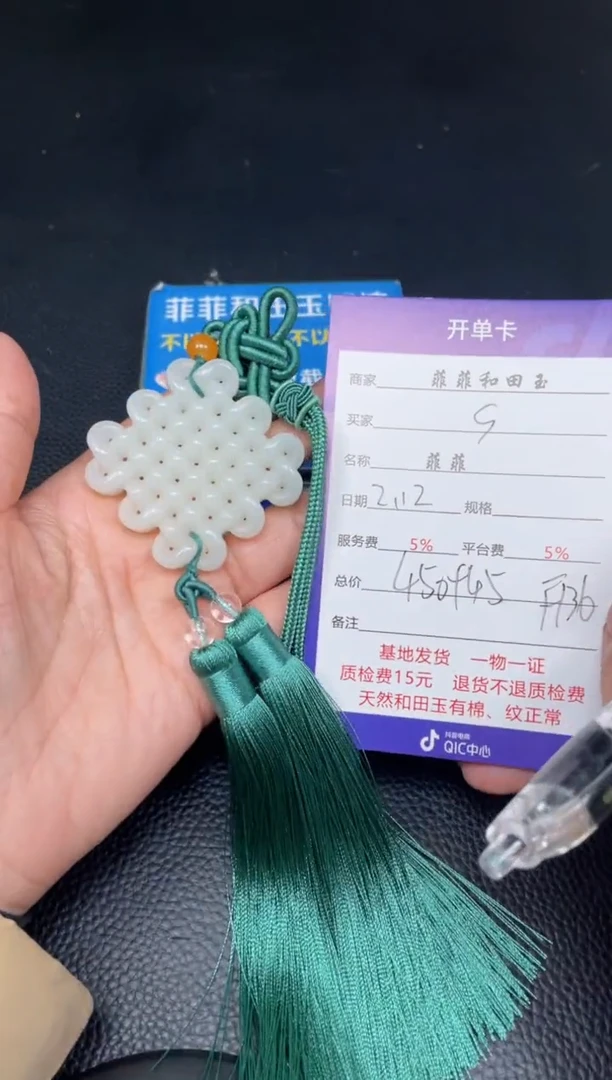 菲菲和田玉
不以
不以
载
开单卡
商家 菲菲和田玉
买家 G
名称 菲菲
日期 2,12 规格
服务费 5% 平台费 5%
总价 450+45 开36
备注
基地发货 一物一证
质检费15元 退货不退质检费
天然和田玉有棉、纹正常
抖音电商
QIC中心